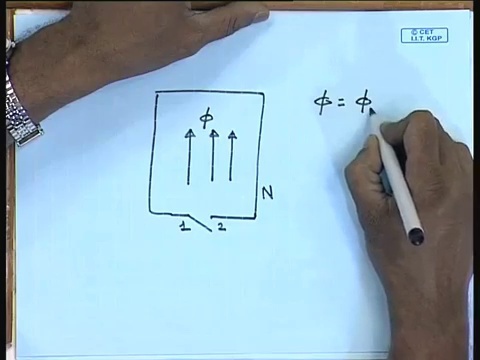 © CET
I.I.T. KGP
ϕ
ϕ = ϕ
N
1 2